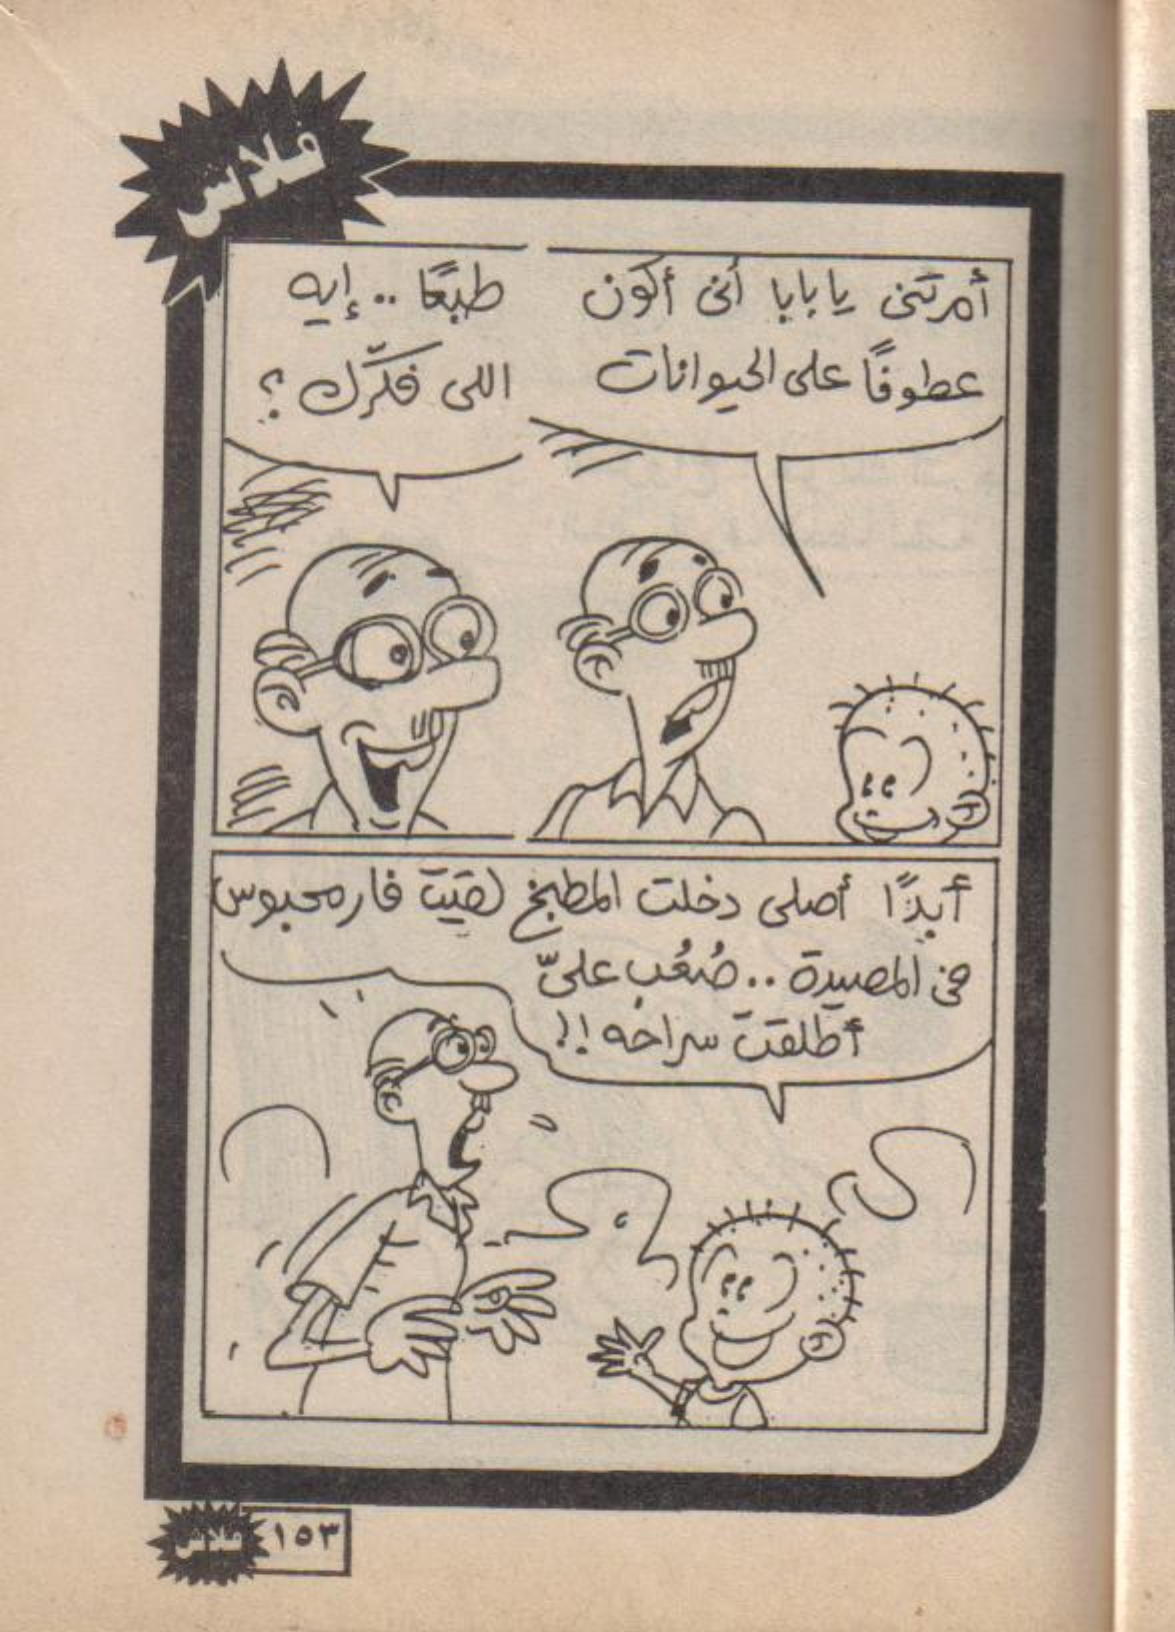 فلاش
أمرتنى يا بابا أنى أكون
عطوفًا على الحيوانات
طبعًا .. إيه
اللى فكّرك ؟
أبدًا أصلى دخلت المطبخ لقيت فار محبوس
فى المصيدة .. صُعُب علىّ
أطلقت سراحه !!
فلاش ١٥٣